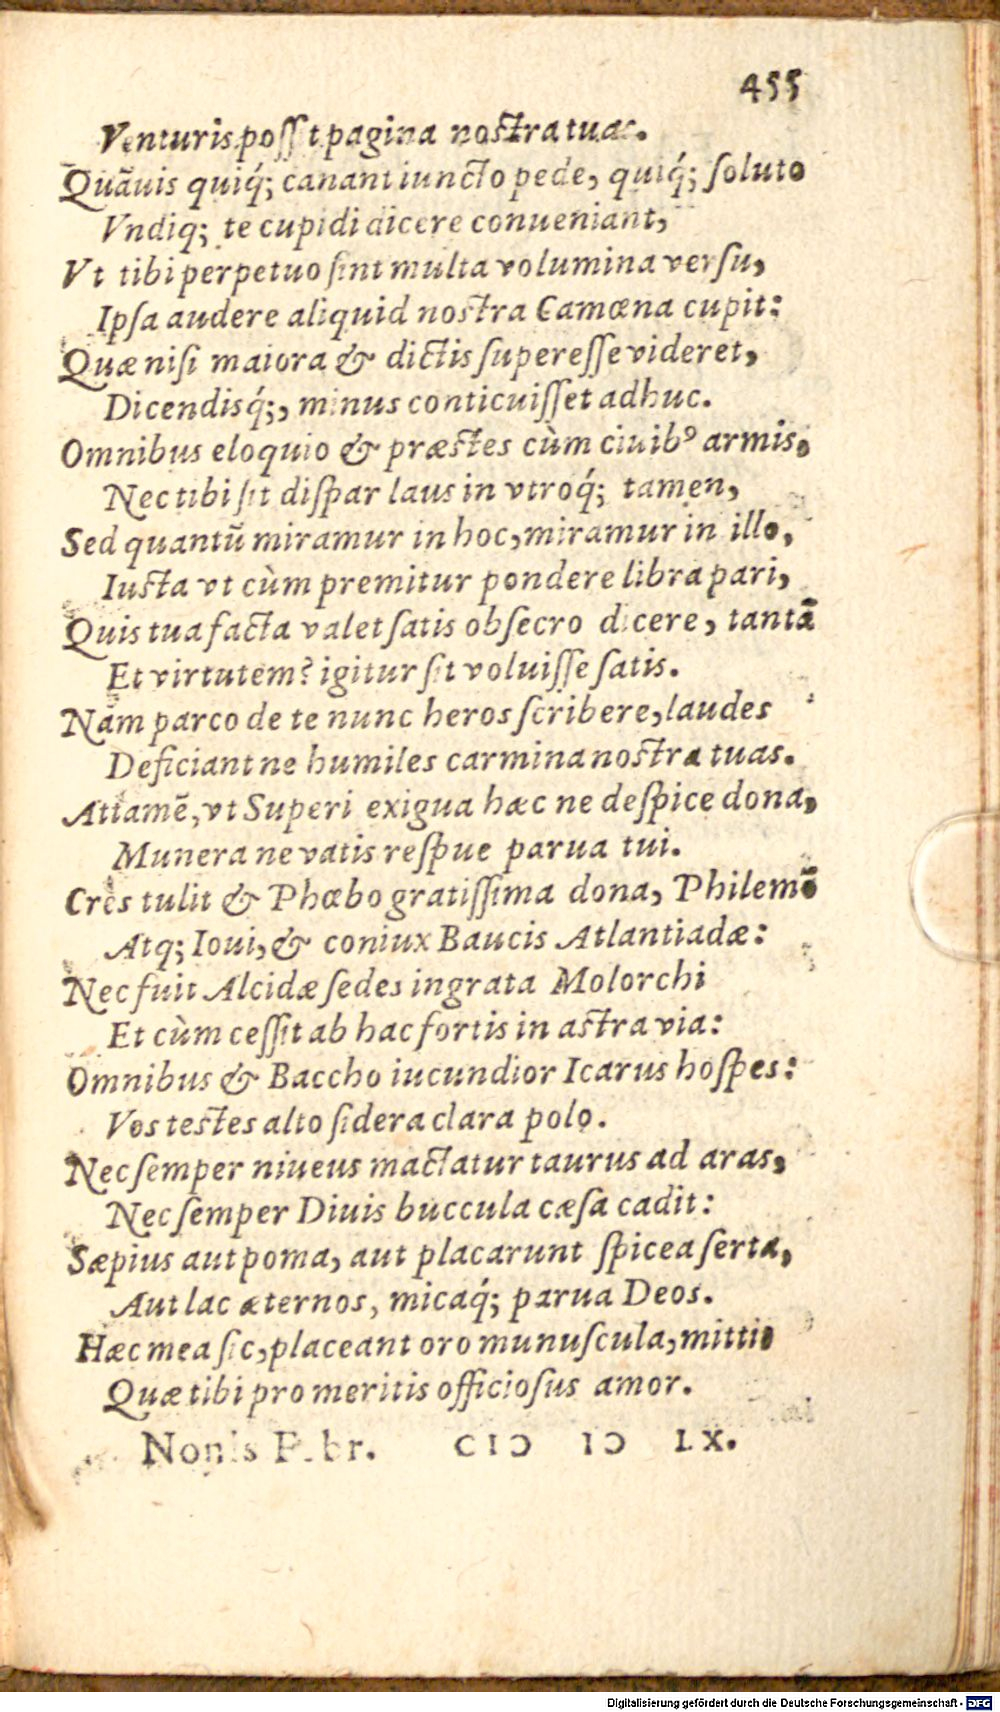 455
Venturis possit pagina nostra tuas.
Quãuis quiq́; canant iuncto pede, quiq́; soluto
Vndiq; te cupidi dicere conueniant,
Vt tibi perpetuo sint multa volumina versu,
Ipsa audere aliquid nostra Camœna cupit:
Quæ nisi maiora & dictis superesse videret,
Dicendisq́;, minus conticuisset adhuc.
Omnibus eloquio & præstes cùm ciuibꝰ armis,
Nec tibi sit dispar laus in vtroq́; tamen,
Sed quantũ miramur in hoc, miramur in illo,
Iusta vt cùm premitur pondere libra pari,
Quis tua facta valet satis obsecro dicere, tantã
Et virtutem? igitur sit voluisse satis.
Nam parco de te nunc heros scribere, laudes
Deficiant ne humiles carmina nostra tuas.
Attamẽ, vt Superi exigua hæc ne despice dona,
Munera ne vatis respue parua tui.
Cres tulit & Phœbo gratissima dona, Philemõ
Atq; Ioui, & coniux Baucis Atlantiadæ:
Nec fuit Alcidæ sedes ingrata Molorchi
Et cùm cessit ab hac fortis in astra via:
Omnibus & Baccho iucundior Icarus hospes:
Vos testes alto sidera clara polo.
Nec semper niueus mactatur taurus ad aras,
Nec semper Diuis buccula cæsa cadit:
Sæpius aut poma, aut placarunt spicea serta,
Aut lac æternos, micaq́; parua Deos.
Hæc mea sic, placeant oro munuscula, mittit
Quæ tibi pro meritis officiosus amor.
Nonis Febr. CIƆ IƆ LX.
Digitalisierung gefördert durch die Deutsche Forschungsgemeinschaft - DFG